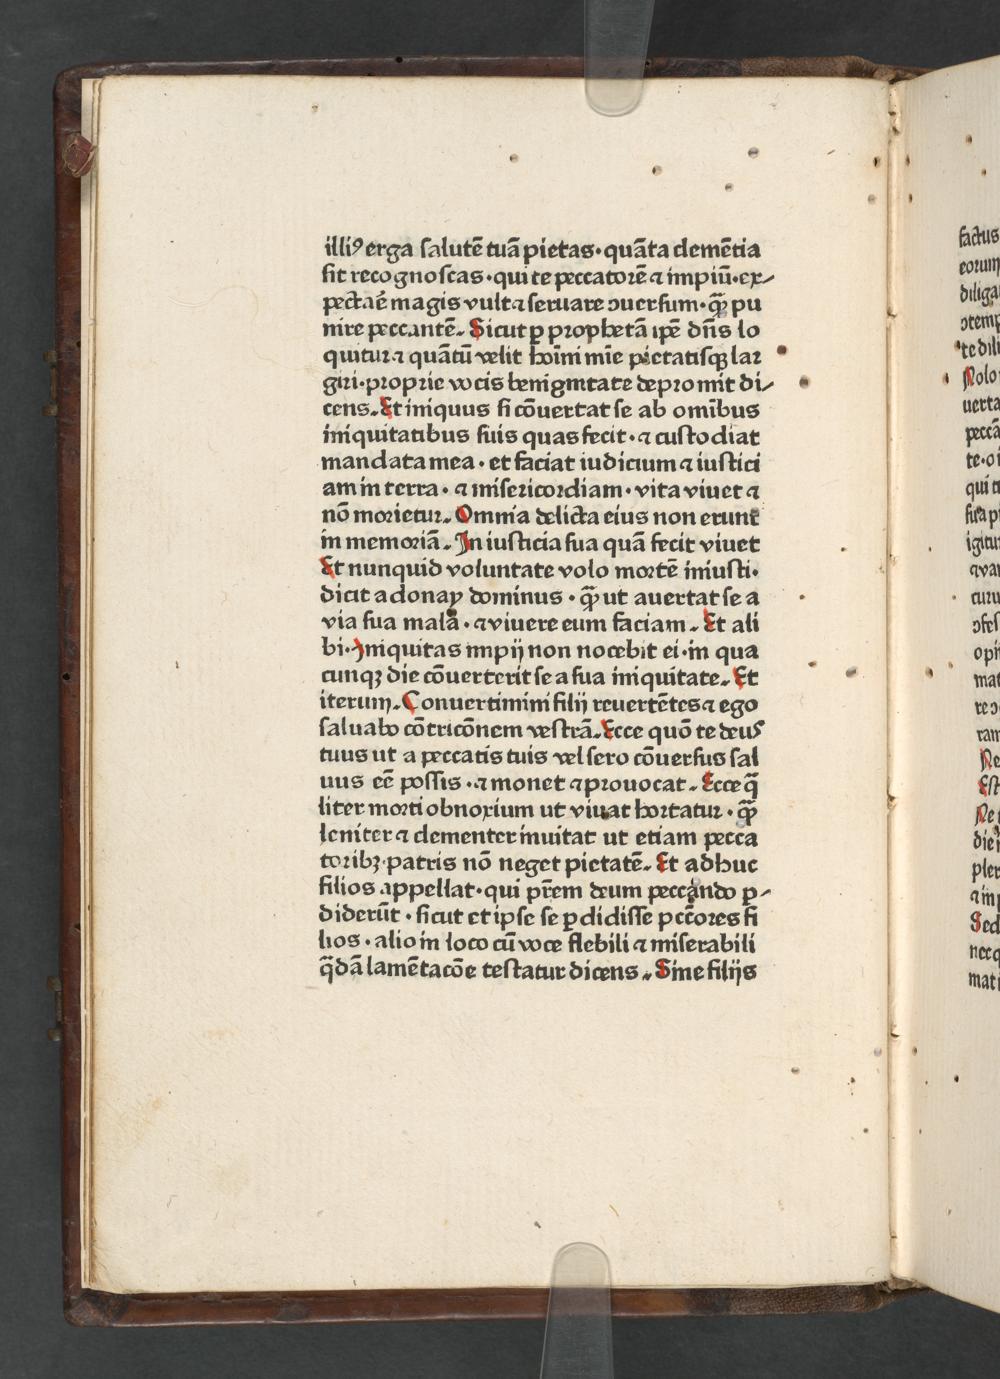 illiꝰ erga salutē tuā pietas · quāta clemētia
sit recognoscas · qui te peccatorē ⁊ impiū · ex⸗
pectaē magis vult ⁊ seruare ↄuersum · qꝫ̄ pu
nire peccantē. Sicut ꝑ prophetā ip̄e dn̄s lo
quitur ⁊ quātū velit hoīni mīe pietatisqꝫ lar
giri · proprie vocis benignitate depromit di⸗
cens. Et iniquus si cōuertat se ab omībus
iniquitatibus suis quas fecit · ⁊ custodiat
mandata mea · et faciat iudicium ⁊ iustici
am in terra · ⁊ misericordiam · vita viuet ⁊
nō morietur. Omnia delicta eius non erunt
in memoriā. In iusticia sua quā fecit viuet
Et nunquid voluntate volo mortē iniusti ·
dicit adonay dominus · qꝫ̄ ut auertat se a
via sua mala · ⁊ viuere eum faciam. Et ali
bi · Iniquitas impij non nocebit ei · in qua
cunqꝫ die cōuerterit se a sua iniquitate. Et
iterum. Conuertimini filij reuertētes ⁊ ego
saluabo cōtricōnem vestrā. Ecce quō te deus
tuus ut a peccatis tuis vel sero cōuersus sal
uus eē possis · ⁊ monet ⁊ prouocat. Ecce q̄
liter morti obnoxium ut viuat hortatur · qꝫ̄
leniter ⁊ clementer inuitat ut etiam pecca
toribꝫ · patris nō neget pietatē. Et adhuc
filios appellat · qui pr̄em deum peccando ꝑ⸗
diderūt · sicut et ipse se ꝑdidisse pc̄cōres fi
lios · alio in loco cū voce flebili ⁊ miserabili
q̄dā lamētacōe testatur dicens. Sine filijs